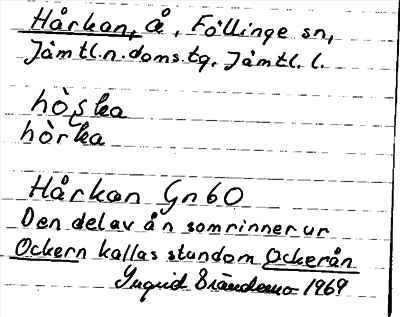 Hårkan, å, Föllinge sn,
Jämtl.n.doms.tg. Jämtl. l.
hòʂka
hòrka
Hårkan Gn60
Den del av ån som rinner ur
Ockern kallas stundom Ockerån
Ingrid 1969